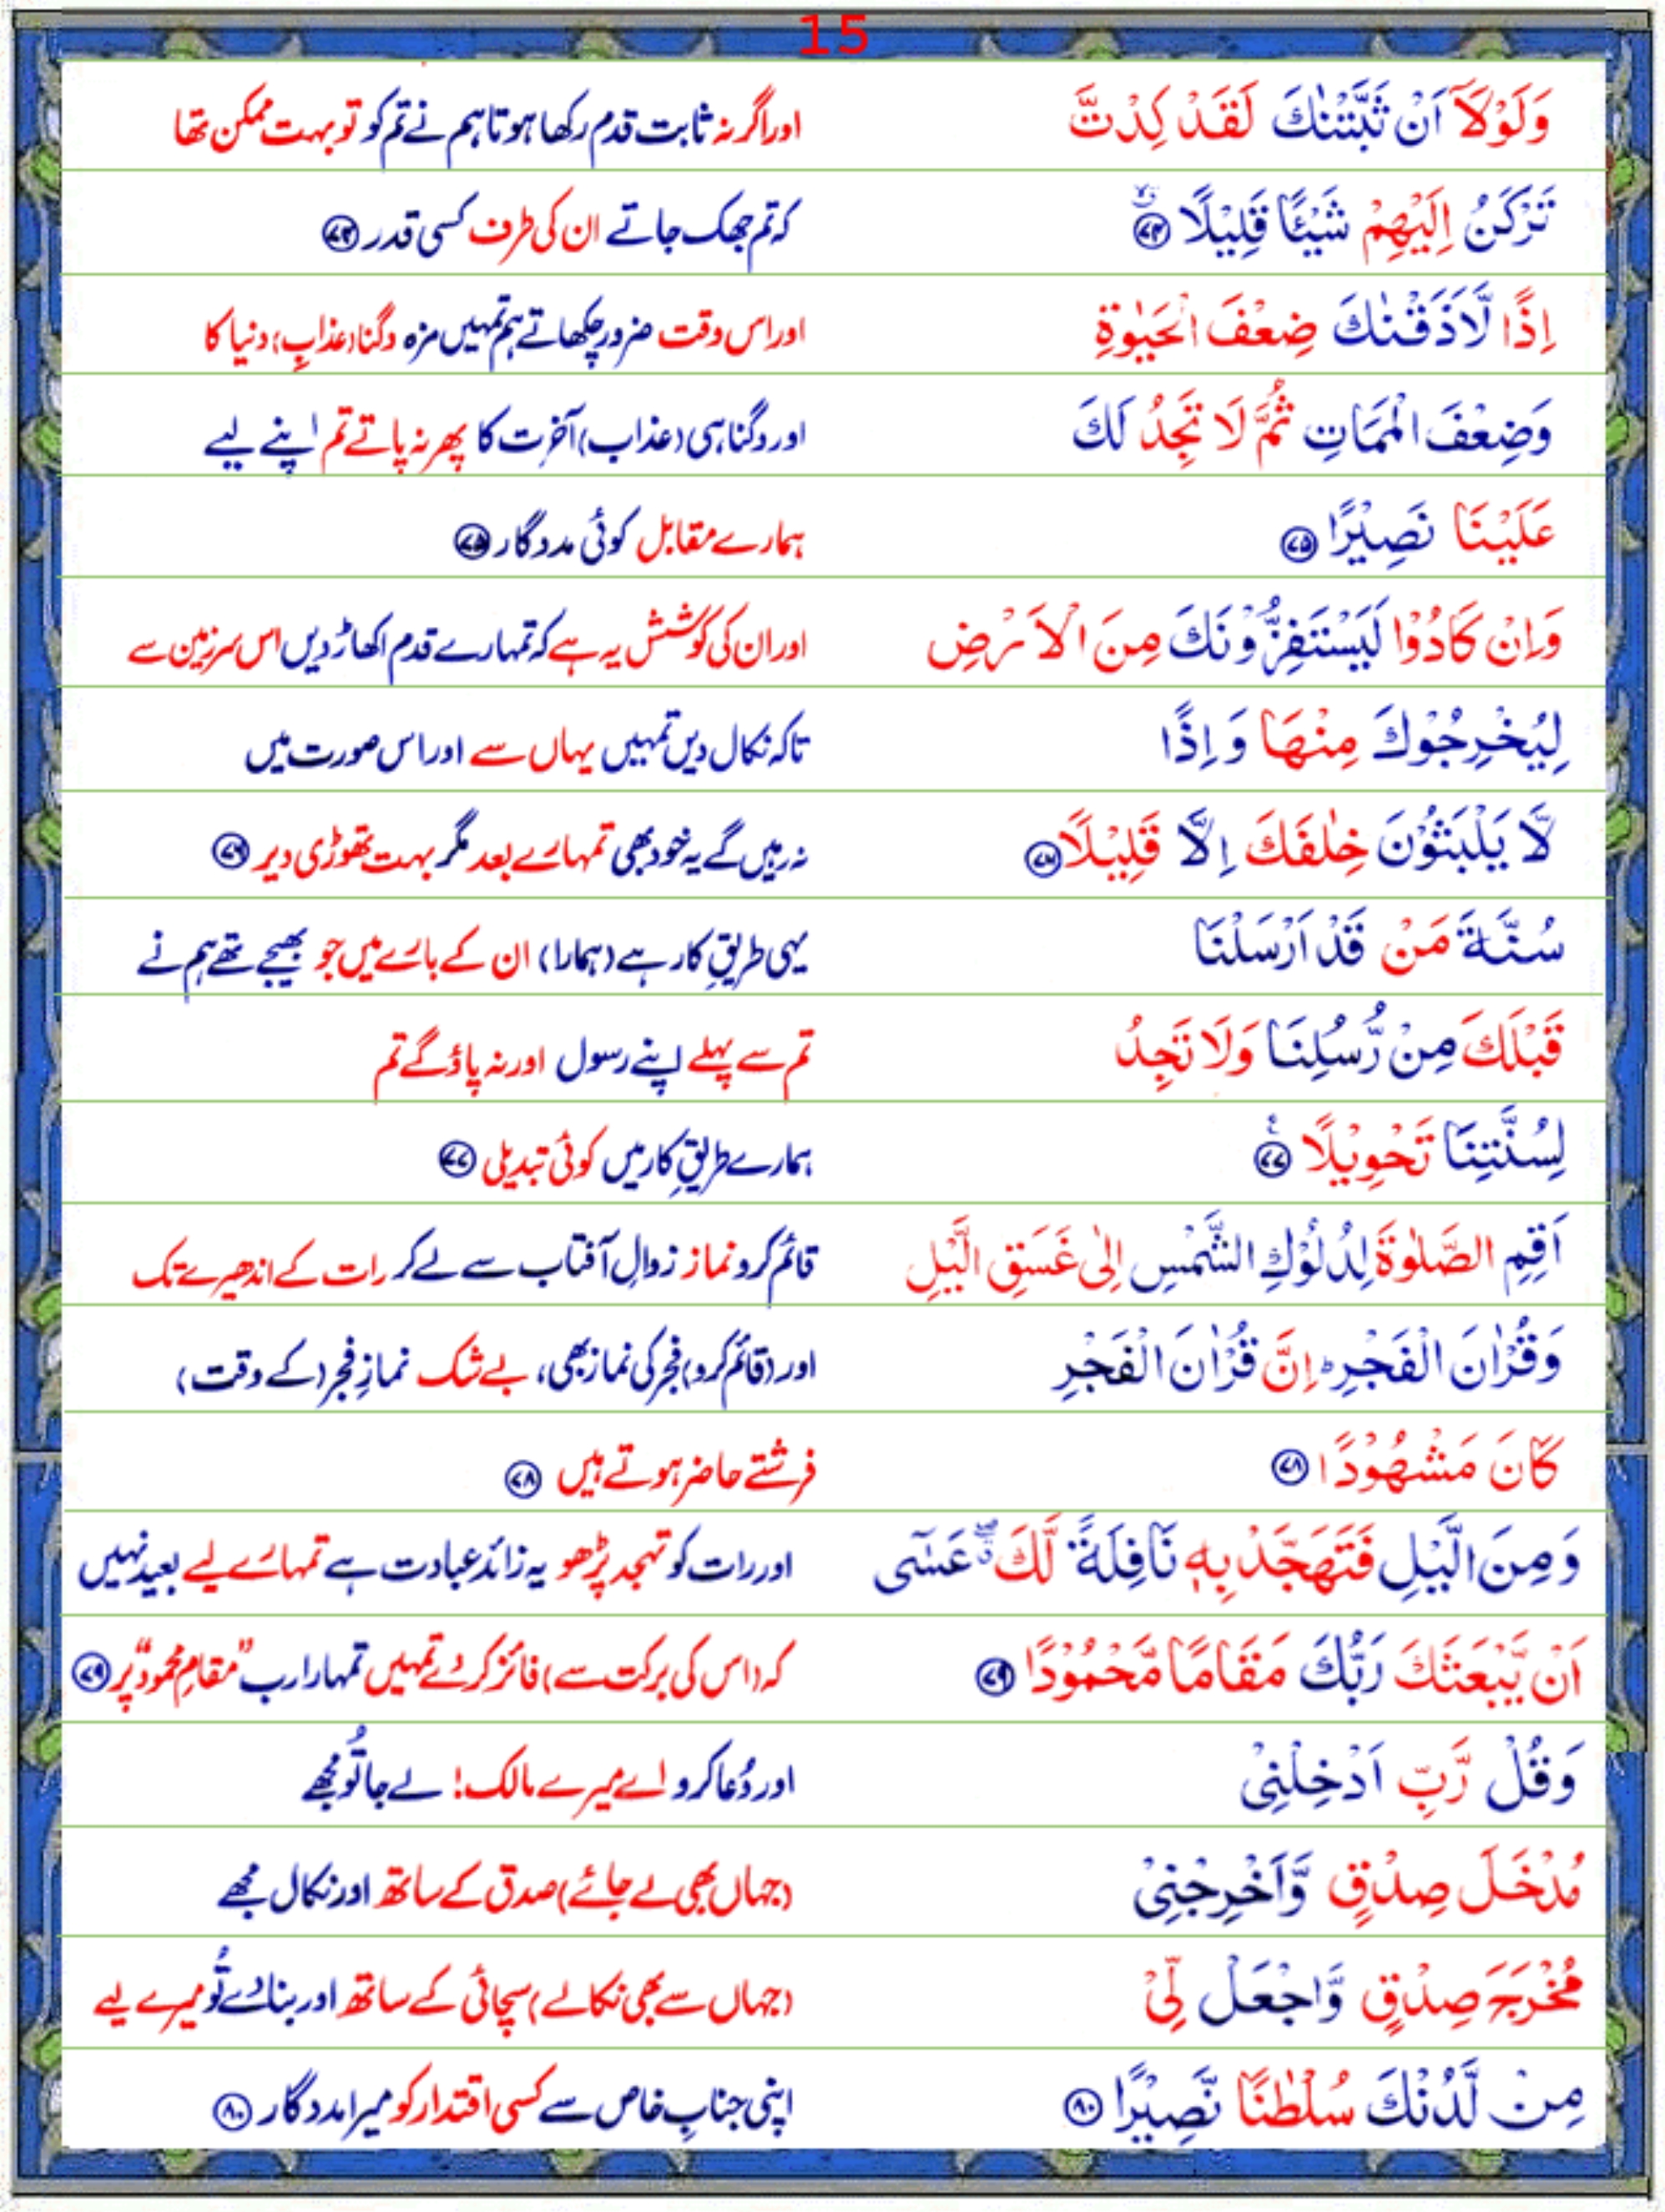 15
وَلَوْلَآ اَنْ ثَبَّتْنٰكَ لَقَدْ كِدْتَّ اور اگر نہ ثابت قدم رکھا ہوتا ہم نے تم کو تو بہت ممکن تھا
تَرْكَنُ اِلَيْهِمْ شَيْئًا قَلِيْلًا ۙ‏ ﴿۷۴﴾ کہ تم جھک جاتے ان کی طرف کسی قدر ﴿۷۴﴾
اِذًا لَّاَذَقْنٰكَ ضِعْفَ الْحَيٰوةِ اور اس وقت ضرور چکھاتے ہم تمہیں مزہ دگنا (عذابِ) دنیا کا
وَضِعْفَ الْمَمَاتِ ثُمَّ لَا تَجِدُ لَكَ اور دگنا ہی (عذاب) آخرت کا پھر نہ پاتے تم اپنے لیے
عَلَيْنَا نَصِيْرًا ﴿۷۵﴾ ہمارے مقابل کوئی مددگار ﴿۷۵﴾
وَاِنْ كَادُوْا لَيَسْتَفِزُّوْنَكَ مِنَ الْاَرْضِ اور ان کی کوشش یہ ہے کہ تمہارے قدم اکھاڑ دیں اس سرزمین سے
لِيُخْرِجُوْكَ مِنْهَا وَ اِذًا تاکہ نکال دیں تمہیں یہاں سے اور اس صورت میں
لَّا يَلْبَثُوْنَ خِلٰفَكَ اِلَّا قَلِيْلًا ﴿۷۶﴾ نہ رہیں گے یہ خود بھی تمہارے بعد مگر بہت تھوڑی دیر ﴿۷۶﴾
سُنَّةَ مَنْ قَدْ اَرْسَلْنَا یہی طریقِ کار ہے (ہمارا) ان کے بارے میں جو بھیجے تھے ہم نے
قَبْلَكَ مِنْ رُّسُلِنَا وَلَا تَجِدُ تم سے پہلے اپنے رسول اور نہ پاؤ گے تم
لِسُنَّتِنَا تَحْوِيْلًا ﴿۷۷﴾ ہمارے طریقِ کار میں کوئی تبدیلی ﴿۷۷﴾
اَقِمِ الصَّلٰوةَ لِدُلُوْكِ الشَّمْسِ اِلٰى غَسَقِ الَّيْلِ قائم کرو نماز زوالِ آفتاب سے لے کر رات کے اندھیرے تک
وَقُرْاٰنَ الْفَجْرِ ؕ اِنَّ قُرْاٰنَ الْفَجْرِ اور (قائم کرو) فجر کی نماز بھی، بے شک نمازِ فجر (کے وقت)
كَانَ مَشْهُوْدًا ﴿۷۸﴾ فرشتے حاضر ہوتے ہیں ﴿۷۸﴾
وَمِنَ الَّيْلِ فَتَهَجَّدْ بِهٖ نَافِلَةً لَّكَ ۖ عَسٰٓى اور رات کو تہجد پڑھو یہ زائد عبادت ہے تمہارے لیے بعید نہیں
اَنْ يَّبْعَثَكَ رَبُّكَ مَقَامًا مَّحْمُوْدًا ﴿۷۹﴾ کہ (اس کی برکت سے) فائز کردے تمہیں تمہارا رب ”مقامِ محمود“ پر ﴿۷۹﴾
وَقُلْ رَّبِّ اَدْخِلْنِىْ اور دُعا کرو اے میرے مالک! لے جا تُو مجھے
مُدْخَلَ صِدْقٍ وَّاَخْرِجْنِىْ (جہاں بھی لے جائے) صدق کے ساتھ اور نکال مجھے
مُخْرَجَ صِدْقٍ وَّاجْعَلْ لِّىْ (جہاں سے بھی نکالے) سچائی کے ساتھ اور بنادے تُو میرے لیے
مِنْ لَّدُنْكَ سُلْطٰنًا نَّصِيْرًا ﴿۸۰﴾ اپنی جنابِ خاص سے کسی اقتدار کو میرا مددگار ﴿۸۰﴾